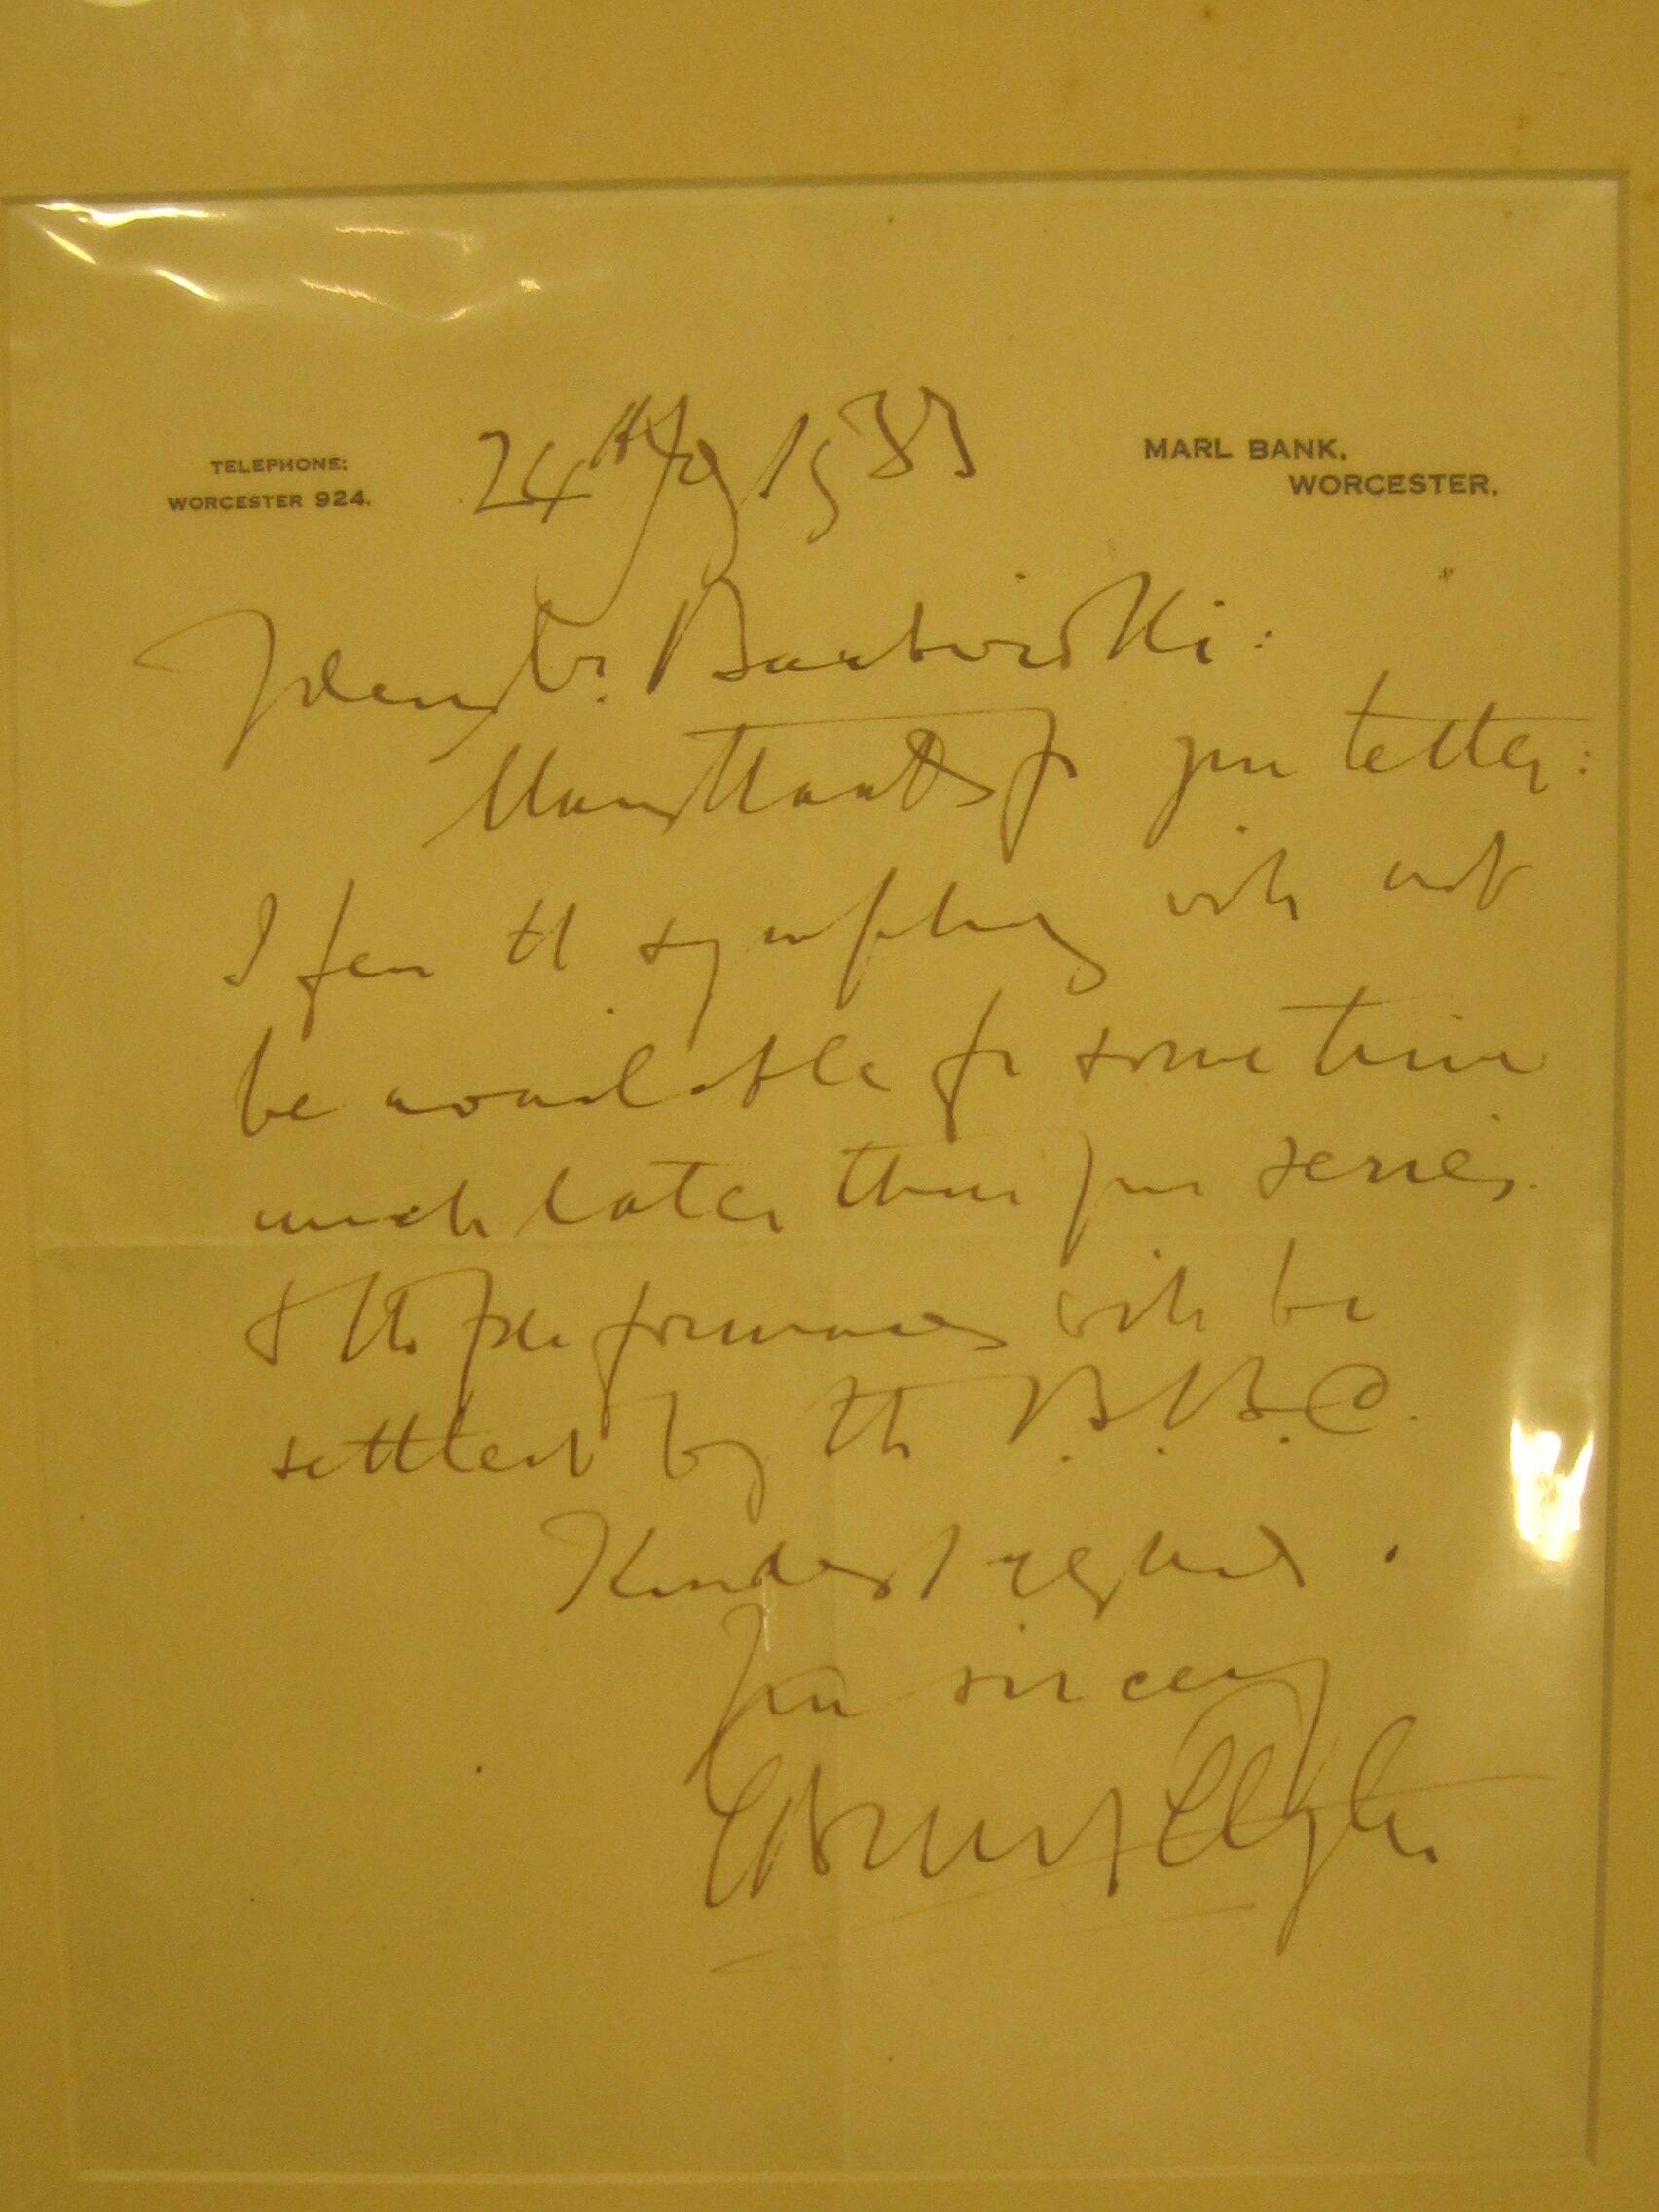 TELEPHONE:
WORCESTER 924.
24th 1933
MARL BANK,
WORCESTER.
Dear Mr. Barbirolli:
Many thanks for your letter:
I fear the symphony will not
be available for some time
much later than your series
& the performances will be
settled by the B.B.C.
Kindest regards.
Yours sincerely
Edward Elgar